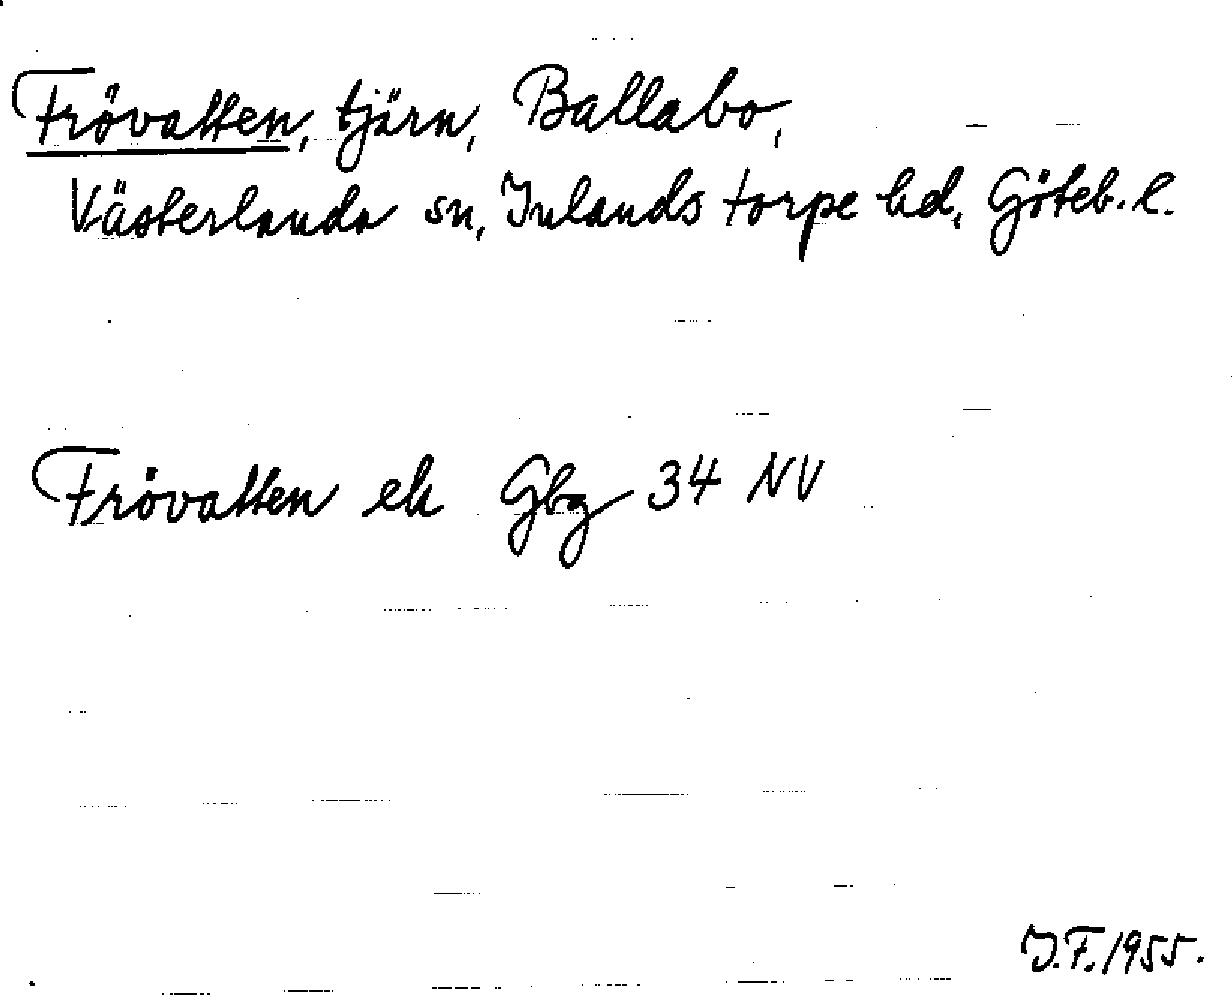 Frövatten, tjärn, Ballabo,
Västerlanda sn, Inlands torpe hd, Göteb. l.
Frövatten ek Gbg 34 NV
I.F. 1955.